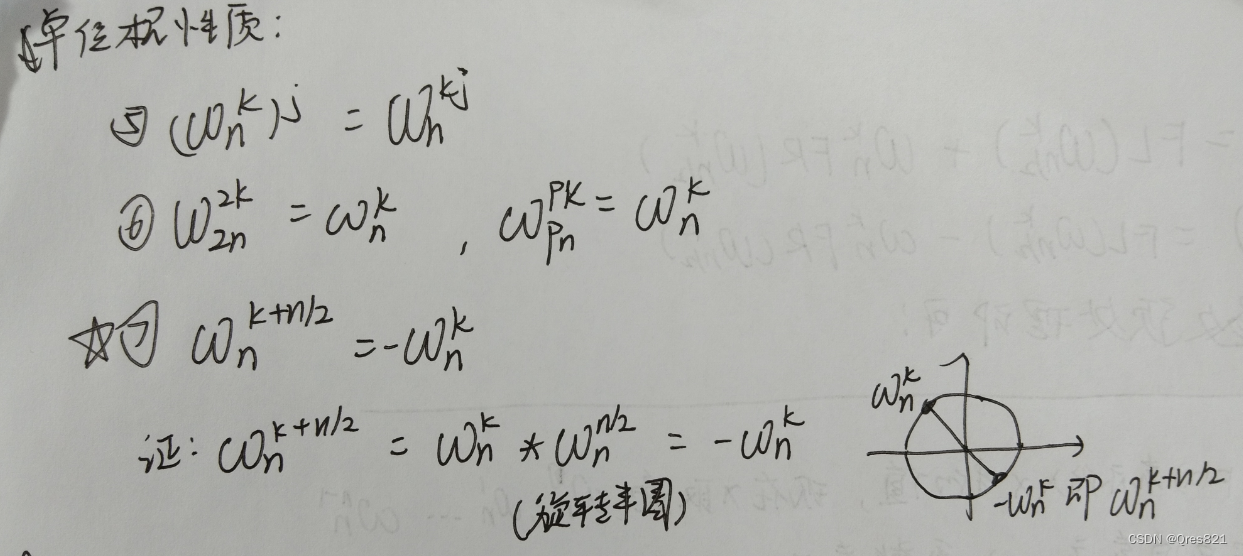 单位根性质:
⑤ (ωₙᵏ)ʲ = ωₙᵏʲ
⑥ ω₂ₙ²ᵏ = ωₙᵏ , ωₚₙᵖᵏ = ωₙᵏ
☆⑦ ωₙᵏ⁺ⁿ/² = -ωₙᵏ
证: ωₙᵏ⁺ⁿ/² = ωₙᵏ * ωₙⁿ/² = -ωₙᵏ
(旋转半圈)
ωₙᵏ
-ωₙᵏ 即 ωₙᵏ⁺ⁿ/²
CSDN @Qres821